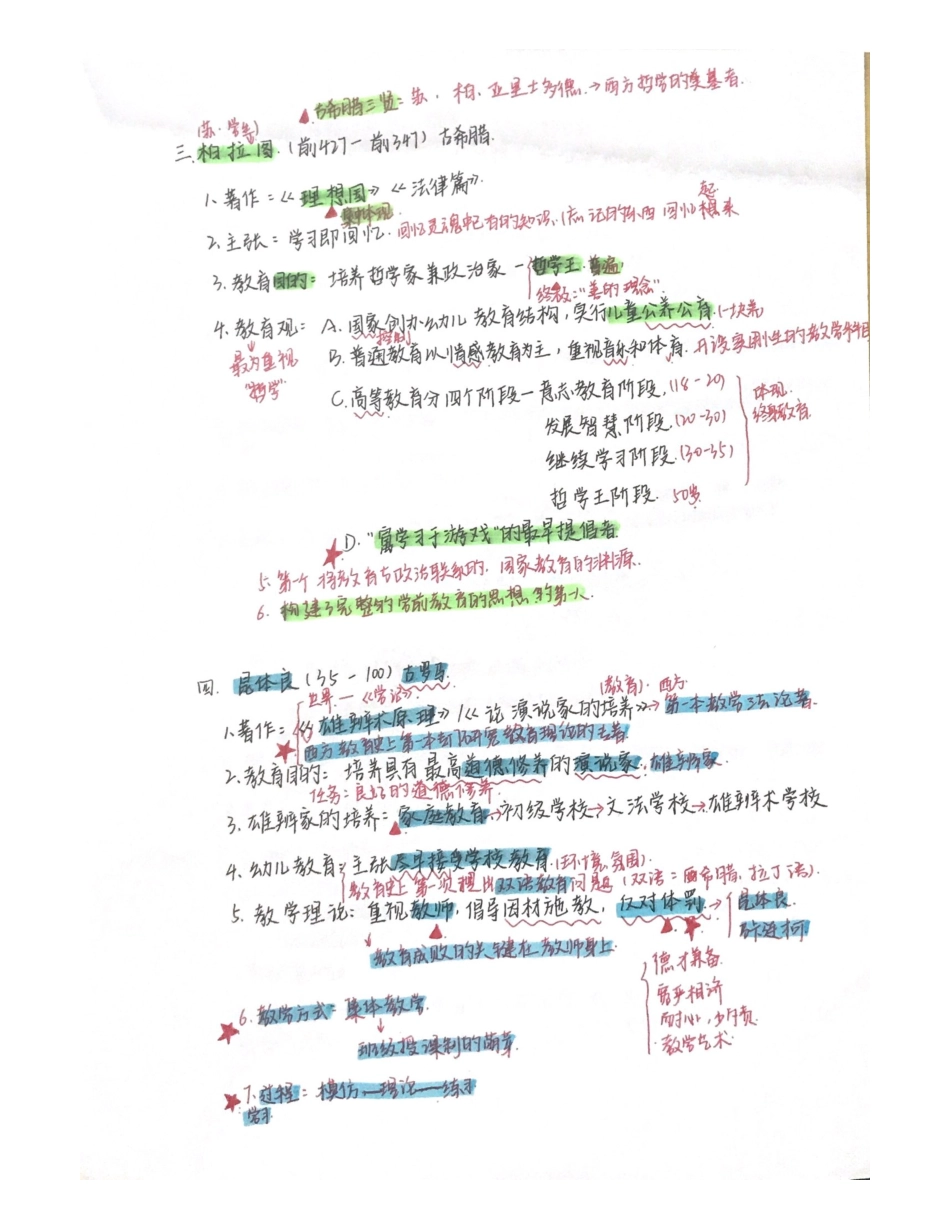 ▲古希腊三贤：苏、柏、亚里士多德.→西方哲学的奠基者.
(苏·学生)
三.柏拉图.(前427-前347) 古希腊.
1.著作：《理想国》《法律篇》.
▲集中体现
2.主张：学习即回忆.回忆灵魂中已有的知识,(忘记的东西 回忆想起来
3.教育目的：培养哲学家兼政治家 — 哲学王.普遍,
终极："善的理念".
4.教育观： A.国家创办幼儿教育结构,实行儿童公养公育.(一块养
控制
最为重视
"哲学"
B.普通教育以情感教育为主,重视音乐和体育.开设实用性的教学科目
C.高等教育分四个阶段—意志教育阶段.(18-20)
发展智慧阶段.(20-30)
继续学习阶段.(30-35)
哲学王阶段. 50岁.
体现.
终身教育.
★D."寓学习于游戏"的最早提倡者.
5.第一个将教育与政治联系的.国家教育的渊源.
6.构建了完整的学前教育的思想的第一人.
四. 昆体良(35-100)古罗马.
世界—《学记》. (教育).西方
1.著作：《雄辩术原理》/《论演说家的培养》→第一本教学法论著.
★西方教育史上第一本专门研究教育理论的专著.
2.教育目的：培养具有最高道德修养的演说家.雄辩家.
任务：良好的道德修养.
3.雄辩家的培养：家庭教育→初级学校→文法学校→雄辩术学校
▲
4.幼儿教育：主张尽早接受学校教育.(环境.氛围).
教育史上第一次提出双语教育问题(双语：希腊、拉丁语).
5.教学理论：重视教师,倡导因材施教,反对体罚→昆体良.
▲ ▲★
教育成败的关键在教师身上.
德才兼备.
宽严相济
耐心,少斥责.
教学艺术.
★6.教学方式：集体教学.
↓
班级授课制的萌芽.
★7.过程：模仿—理论—练习
学习.